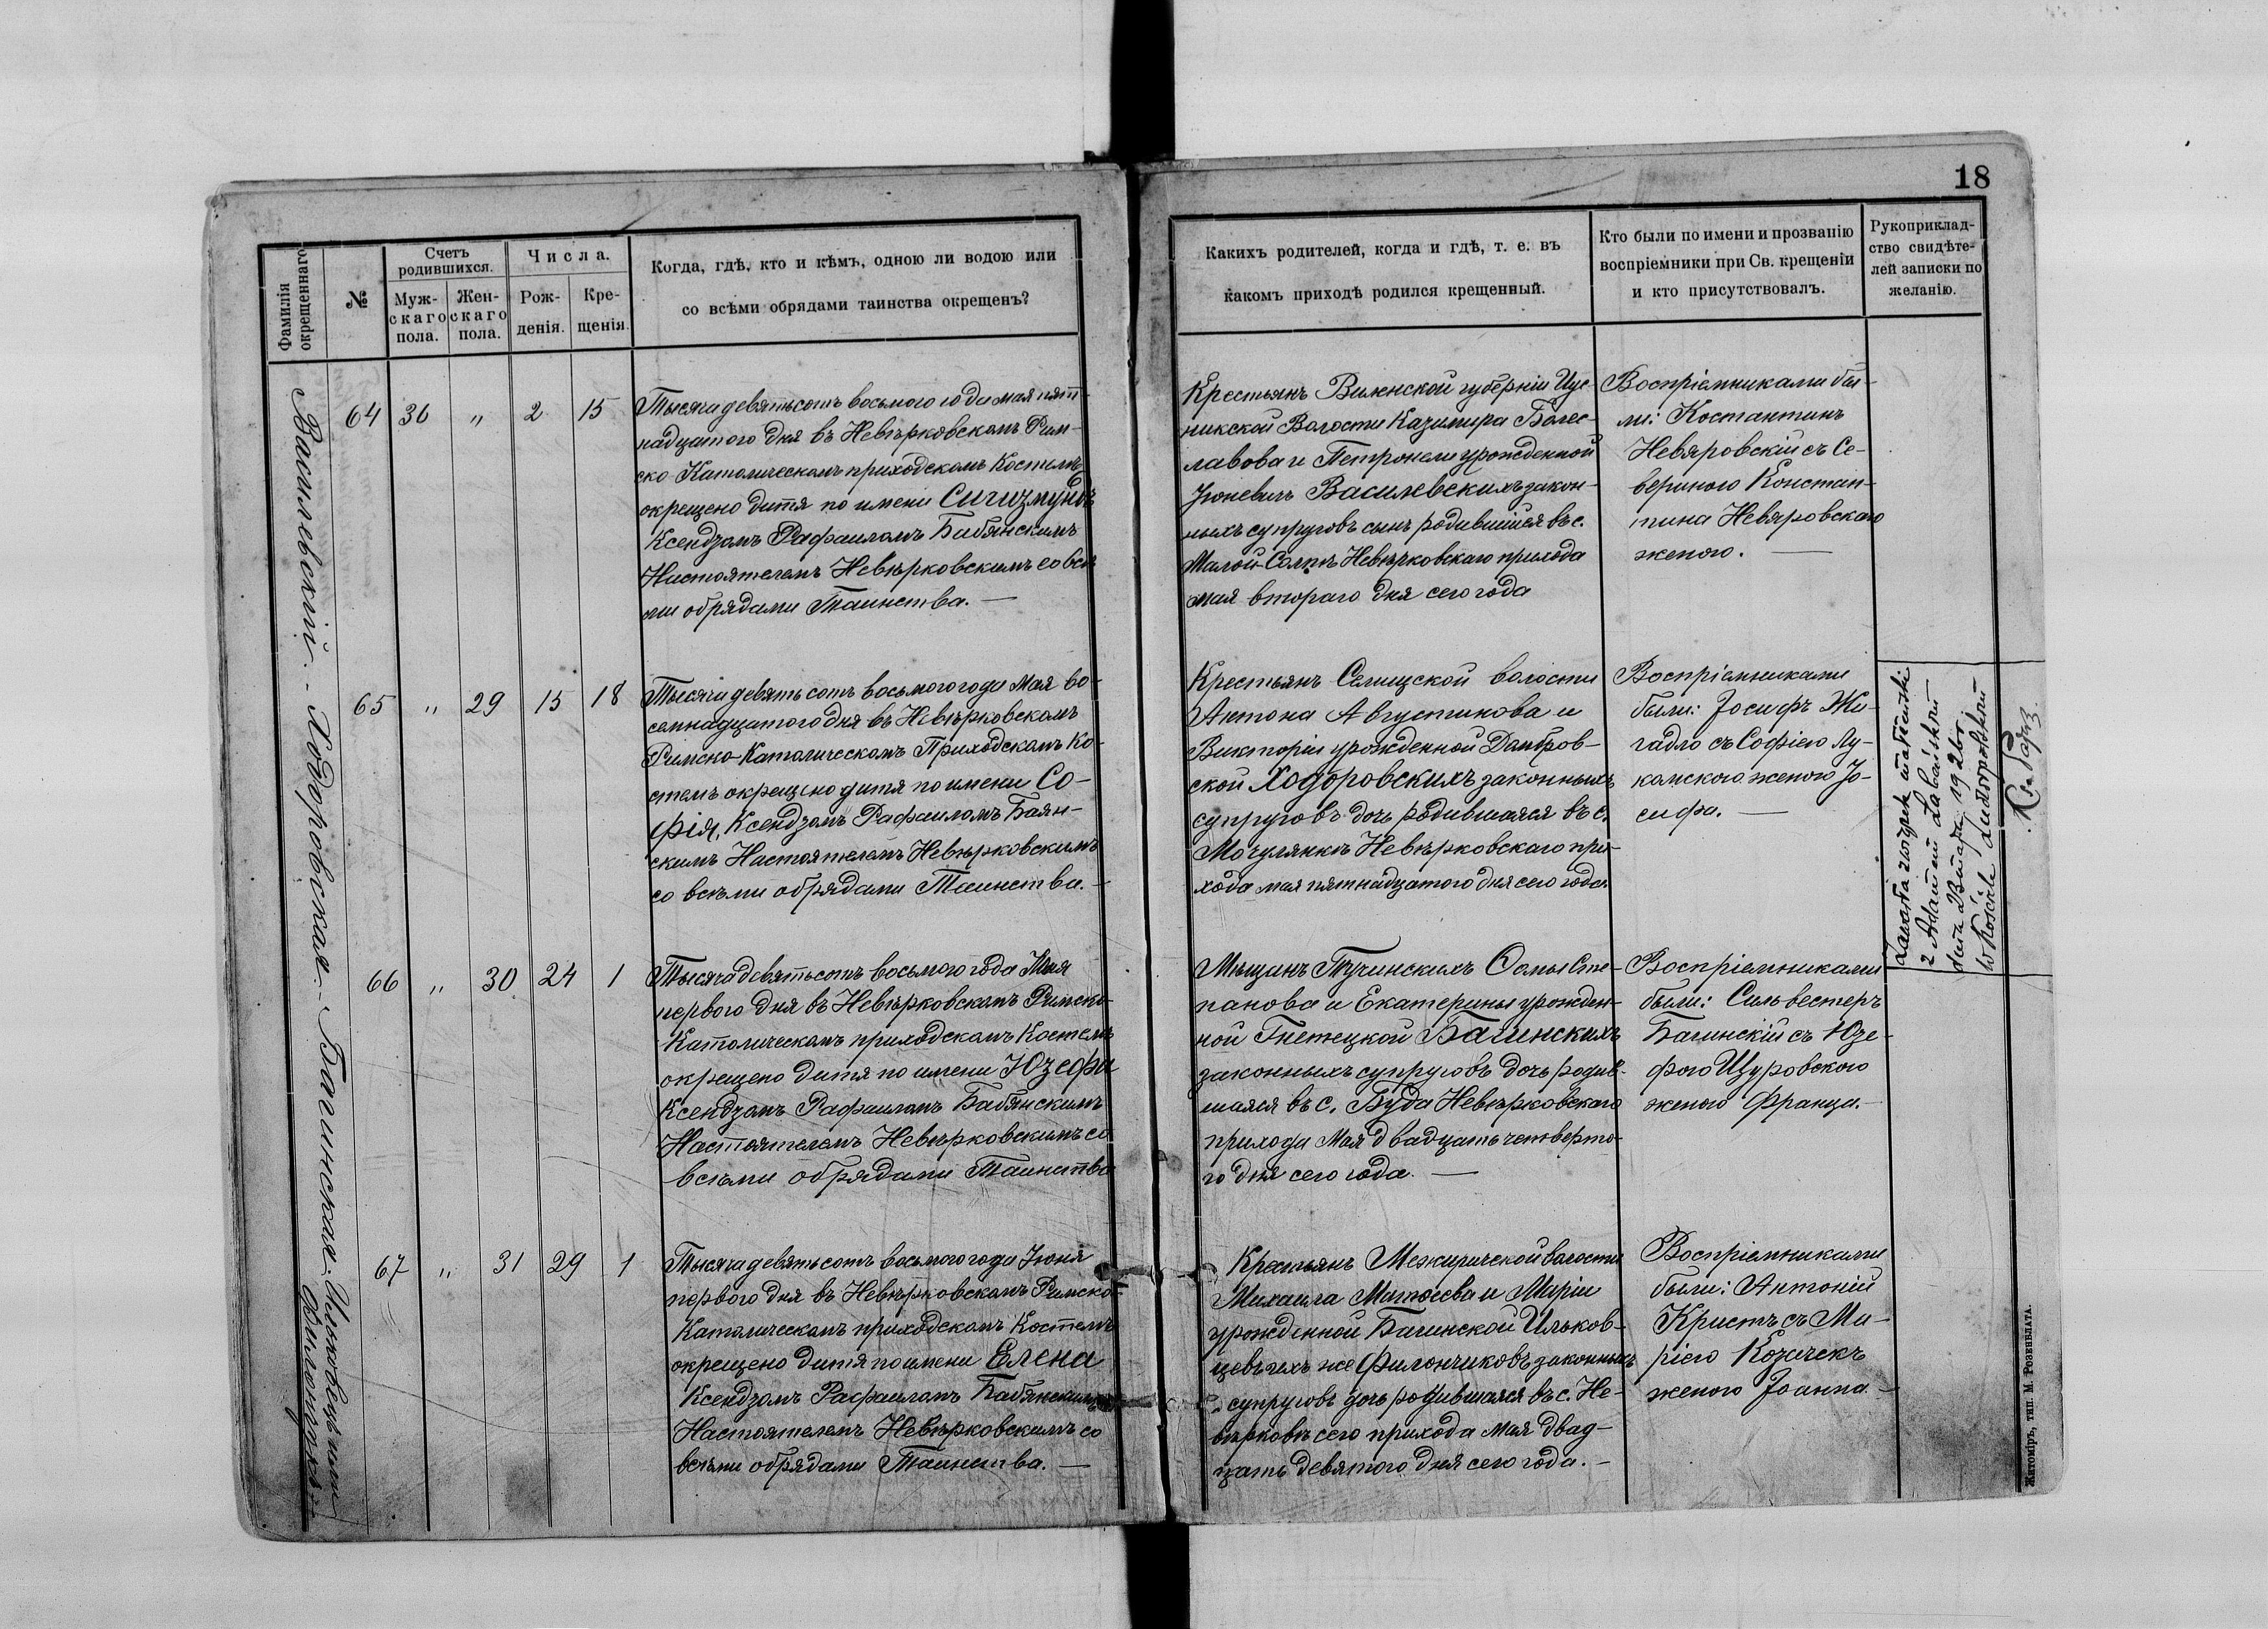 18
Фамилія
окрещеннаго
№
Счетъ
родившихся.
Муж-
скаго
пола.
Жен-
скаго
пола.
Числа.
Рож-
денія.
Кре-
щенія.
Когда, гдѣ, кто и кѣмъ, одною ли водою или
со всѣми обрядами таинства окрещенъ?
Какихъ родителей, когда и гдѣ, т. е. въ
какомъ приходѣ родился крещенный.
Кто были по имени и прозванію
воспріемники при Св. крещеніи
и кто присутствовалъ.
Рукоприклад-
ство свидѣте-
лей записки по
желанію.
Василевскій.
64 30 „ 2 15
Тысяча девятьсотъ восьмого года мая пят-
надцатого дня въ Невѣрковскомъ Рим-
ско Католическомъ приходскомъ Костелѣ
окрещено дитя по имени Сигизмундъ
Ксендзомъ Рафаиломъ Бабянскимъ
Настоятелемъ Невѣрковскимъ со всѣ
ми обрядами Таинства. —
Крестьянъ Виленской губерніи
Волости Казимира Болес-
лавова и Петронели урожденной
Василевскихъ закон-
ныхъ супруговъ сынъ родившійся въ с.
Малой Невѣрковскаго прихода
мая втораго дня сего года
Воспріемниками бы-
ли: Костантинъ
Невяровскій съ Се-
вериною Констан-
тина Невяровскаго
женою. —
Ходоровская.
65 „ 29 15 18
Тысяча девятьсотъ восьмого года Мая во-
семнадцатого дня въ Невѣрковскомъ
Римско-Католическомъ Приходскомъ Ко-
стелѣ окрещено дитя по имени Со-
фія, Ксендзомъ Рафаиломъ Баян-
скимъ Настоятелемъ Невѣрковскимъ
со всѣми обрядами Таинства. —
Крестьянъ Селищской волости
Антона Августинова и
Викторіи урожденной Домбров-
ской Ходоровскихъ законныхъ
супруговъ дочь родившаяся въ с.
Могулянкѣ Невѣрковскаго при-
хода мая пятнадцатого дня сего года.
Воспріемниками
были: Іосифъ Жи-
гадло съ Софіею Лу-
комскою женою Іо-
сифа. —
Zawarła związek małżeński
z Adamem
dnia 1926 r.
w kościele
Багинская.
66 „ 30 24 1
Тысяча девятьсотъ восьмого года Мая
первого дня въ Невѣрковскомъ Римско-
Католическомъ приходскомъ Костелѣ
окрещено дитя по имени Юзефа
Ксендзомъ Рафаиломъ Бабянскимъ
Настоятелемъ Невѣрковскимъ со
всѣми обрядами Таинства
Мѣщанъ Тучинскихъ Ѳомы Сте-
панова и Екатерины урожден-
ной Гнетецкой Багинскихъ
законныхъ супруговъ дочь родив-
шаяся въ с. Буда Невѣрковскаго
прихода Мая двадцать четверто-
го дня сего года. —
Воспріемниками
были: Сильвестеръ
Багинскій съ Юзе-
фою Щуровскою
женою Франца. —
67 „ 31 29 1
Тысяча девятьсотъ восьмого года Іюня
первого дня въ Невѣрковскомъ Римско-
Католическомъ приходскомъ Костелѣ
окрещено дитя по имени Елена
Ксендзомъ Рафаиломъ Бабянскимъ
Настоятелемъ Невѣрковскимъ со
всѣми обрядами Таинства. —
Крестьянъ Межиричской волости
Михаила Матѳеева и Маріи
урожденной Багинской Ильков-
цевъ ихъ же Филончиковъ законныхъ
супруговъ дочь родившаяся въ с. Не-
вѣрковѣ сего прихода мая двад-
цать девятого дня сего года. —
Воспріемниками
были: Антоній
Кристъ съ Ма-
ріею Козачекъ
женою Іоанна. —
Житоміръ, тип. М. Розенблата.